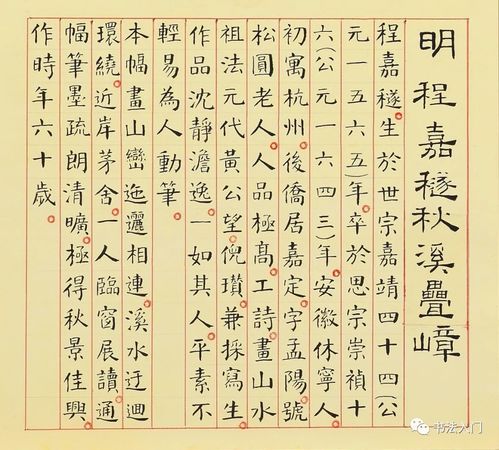 明程嘉燧秋溪疊嶂
程嘉燧生於世宗嘉靖四十四(公
元一五六五)年。卒於思宗崇禎十
六(公元一六四三)年。安徽休寧人。
初寓杭州。後僑居嘉定。字孟陽。號
松圓老人。人品極高。工詩畫。山水
祖法元代黃公望。倪瓚。兼採寫生。
作品沈靜澹逸。一如其人。平素不
輕易為人動筆。
本幅畫山巒迤邐相連。溪水迂迴
環繞。近岸茅舍。一人臨窗展讀。通
幅筆墨疏朗清曠。極得秋景佳興。
作時年六十歲。
书法入门